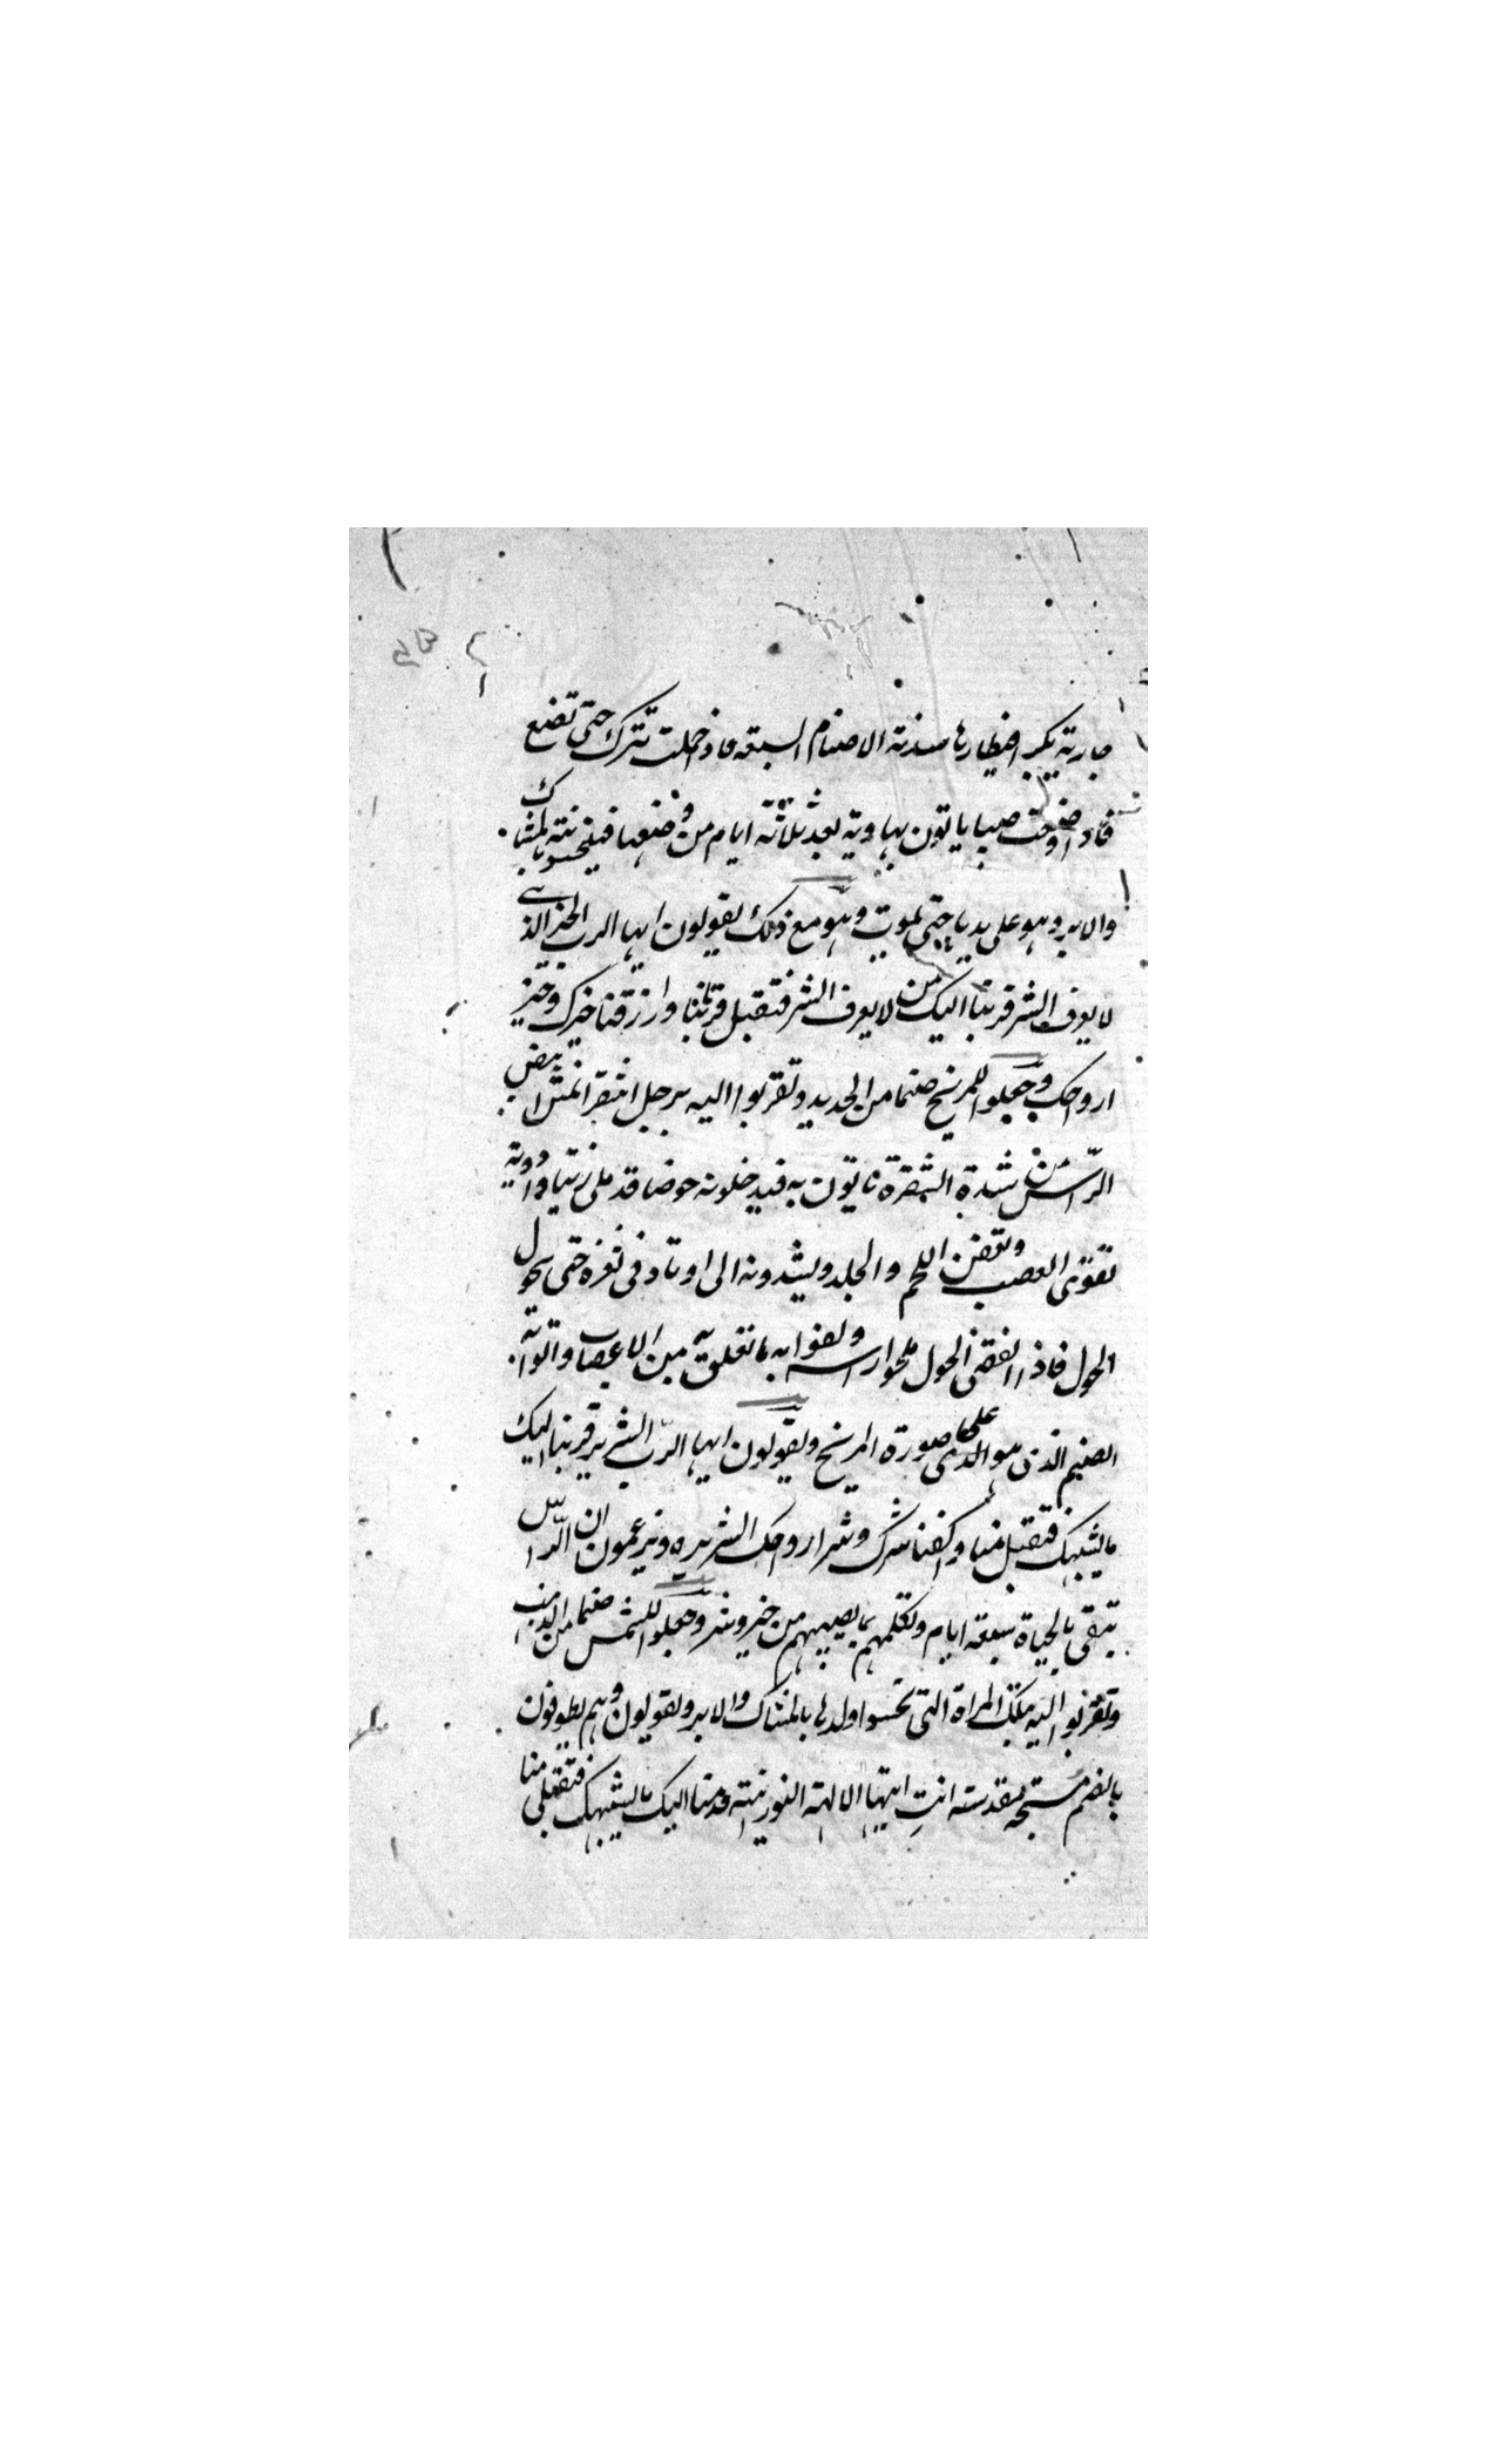 جارية بكر افيطارها سدنة الاصنام السبعة فاذا حملت تترك حتى تضع
فاذا وضعت صبيا ياتون بها وبه بعد ثلاثة ايام من وضعها فينخسونه بالمشاك
والابر وهو على يديها حتى يموت وهو مع ذلك يقولون ايها الرب الخير الذى
لا يعرف الشر قربنا اليك من لا يعرف الشر فتقبل قرباننا وارزقنا خيرك وخير
ارواحك وجعلوا للمريخ صنما من الحديد وتقربوا اليه برجل اشقر انمش ابيض
الراس من شدة الشقرة ياتون به فيدخلونه حوضا قد ملئ زيتا وادوية
تقوى العصب وتعفن اللحم والجلد ويشدونه الى اوتاد فى ثغره حتى يحول
الحول فاذا انقضى الحول ملحوا راسه والقوا به ما تعلق به من الاعصاب واتوا به
الصنم الذى هو على صورة المريخ ويقولون ايها الرب الشرير قربنا اليك
ما يشبهك فتقبل منا واكفنا شرك وشر ارواحك الشريره ويزعمون ان الراس
تبقى بالحياة سبعة ايام وتكلمهم بما يصيبهم من خير وشر وجعلوا للشمس صنما من الذهب
وتقربوا اليه بتلك المراة التى نخسوا ولدها بالمشاك والابر ويقولون وهم يطوفون
بالصنم مسبحه مقدسته انتِ ايتها الالهة النورانيته قدمنا اليك ما يشبهك فتقبلى منا